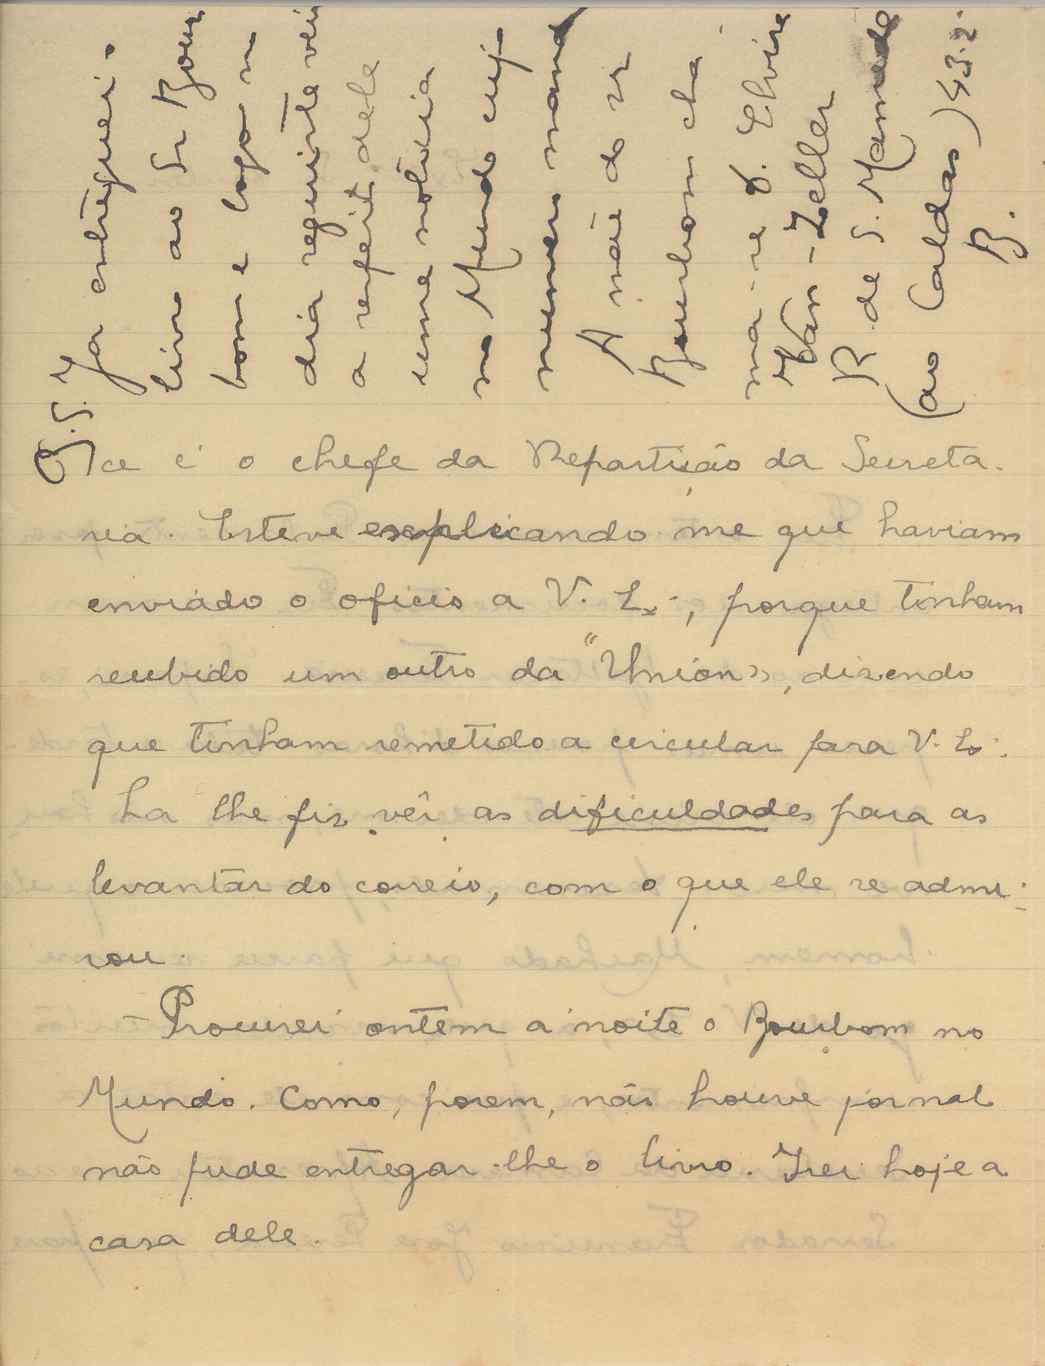 ce é o chefe da Repartição da Secreta-
ria. Esteve explicando me que haviam
enviado o oficio a V. Ex.ª, porque tinham
recebido um outro da "Union", dizendo
que tinham remetido a circular para V. Ex.ª.
Ha lhe fiz vêr as dificuldades para as
levantar do correio, com o que ele se admi-
rou.
– Procurei ontem a noite o Bourbom no
Mundo. Como, porem, não houve jornal
não pude entregar-lhe o livro. Irei hoje a
casa dele.
P.S. Ja entreguei o
livro ao Sr Bour
bom e logo no
dia seguinte veiu
a respeito dele
uma noticia
no Mundo cujo
numero mando
A mãe do sr
Bourbom cha
ma-se D. Elvira
Wan-Zeller
R. de S. Mamede
(ao Caldas) 43.2.
B.